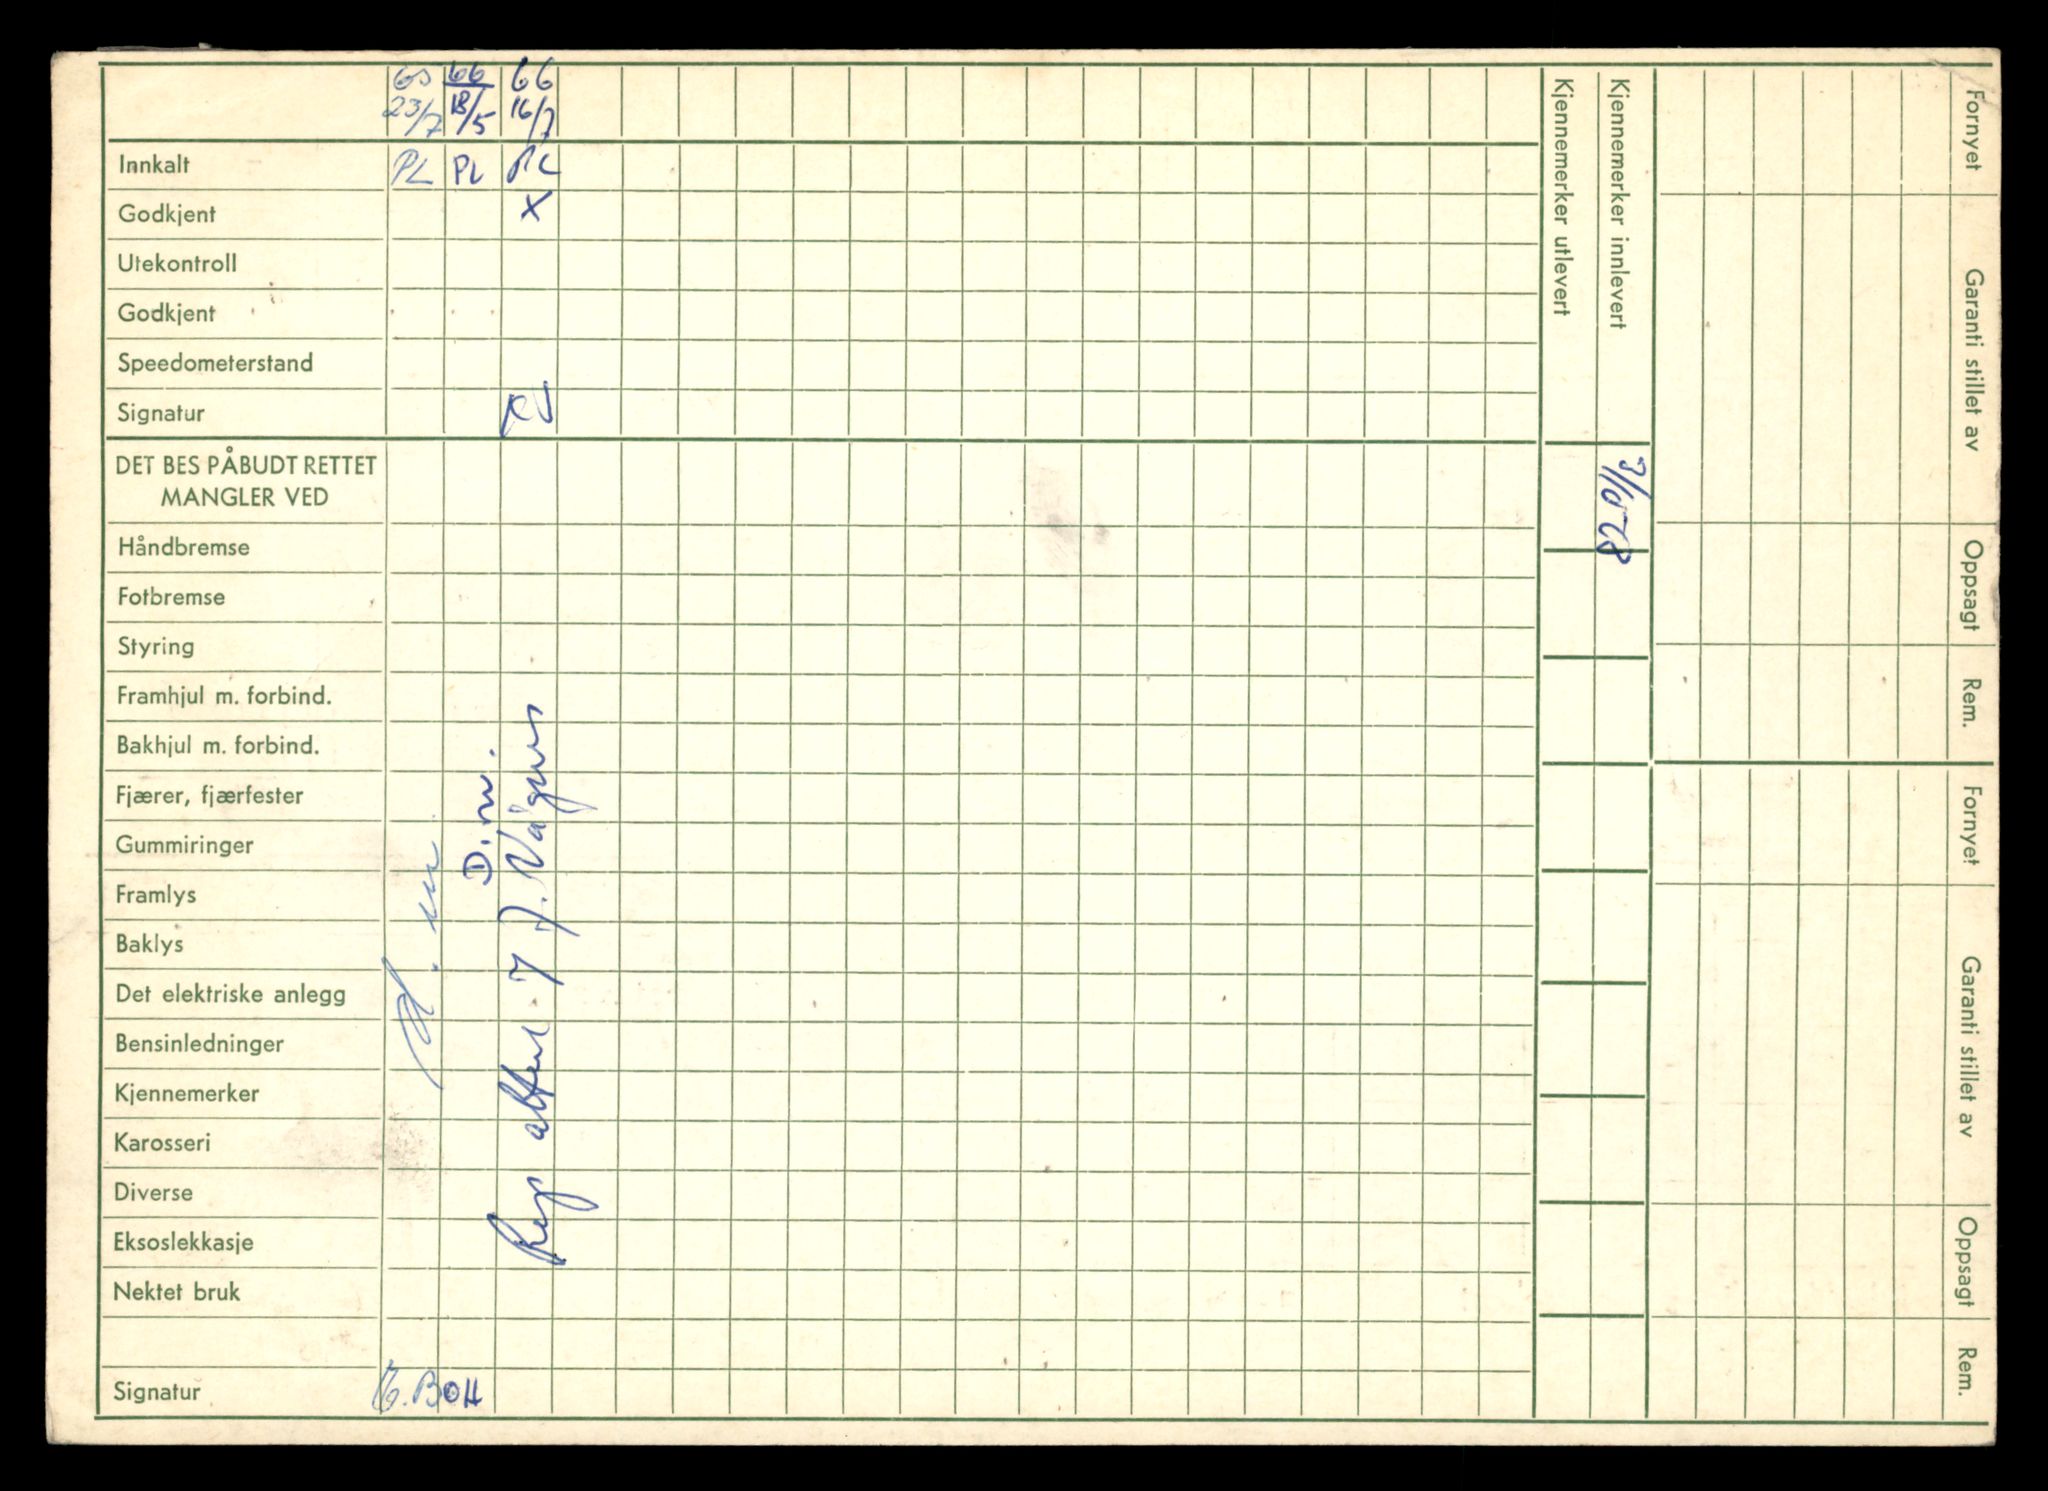 65 66 66
23/7 18/5 16/7
Innkalt PL PL PL
Godkjent X
Utekontroll
Godkjent
Speedometerstand
Signatur
DET BES PÅBUDT RETTET
MANGLER VED
Håndbremse
Fotbremse
Styring
Framhjul m. forbind.
Bakhjul m. forbind.
Fjærer, fjærfester
Gummiringer
Framlys
Baklys
Det elektriske anlegg
Bensinledninger
Kjennemerker
Karosseri
Diverse
Eksoslekkasje
Nektet bruk
Signatur
d. m.
D. m.
Kjennemerker utlevert
Kjennemerker innlevert
Fornyet
Garanti stillet av
Oppsagt
Rem.
Fornyet
Garanti stillet av
Oppsagt
Rem.